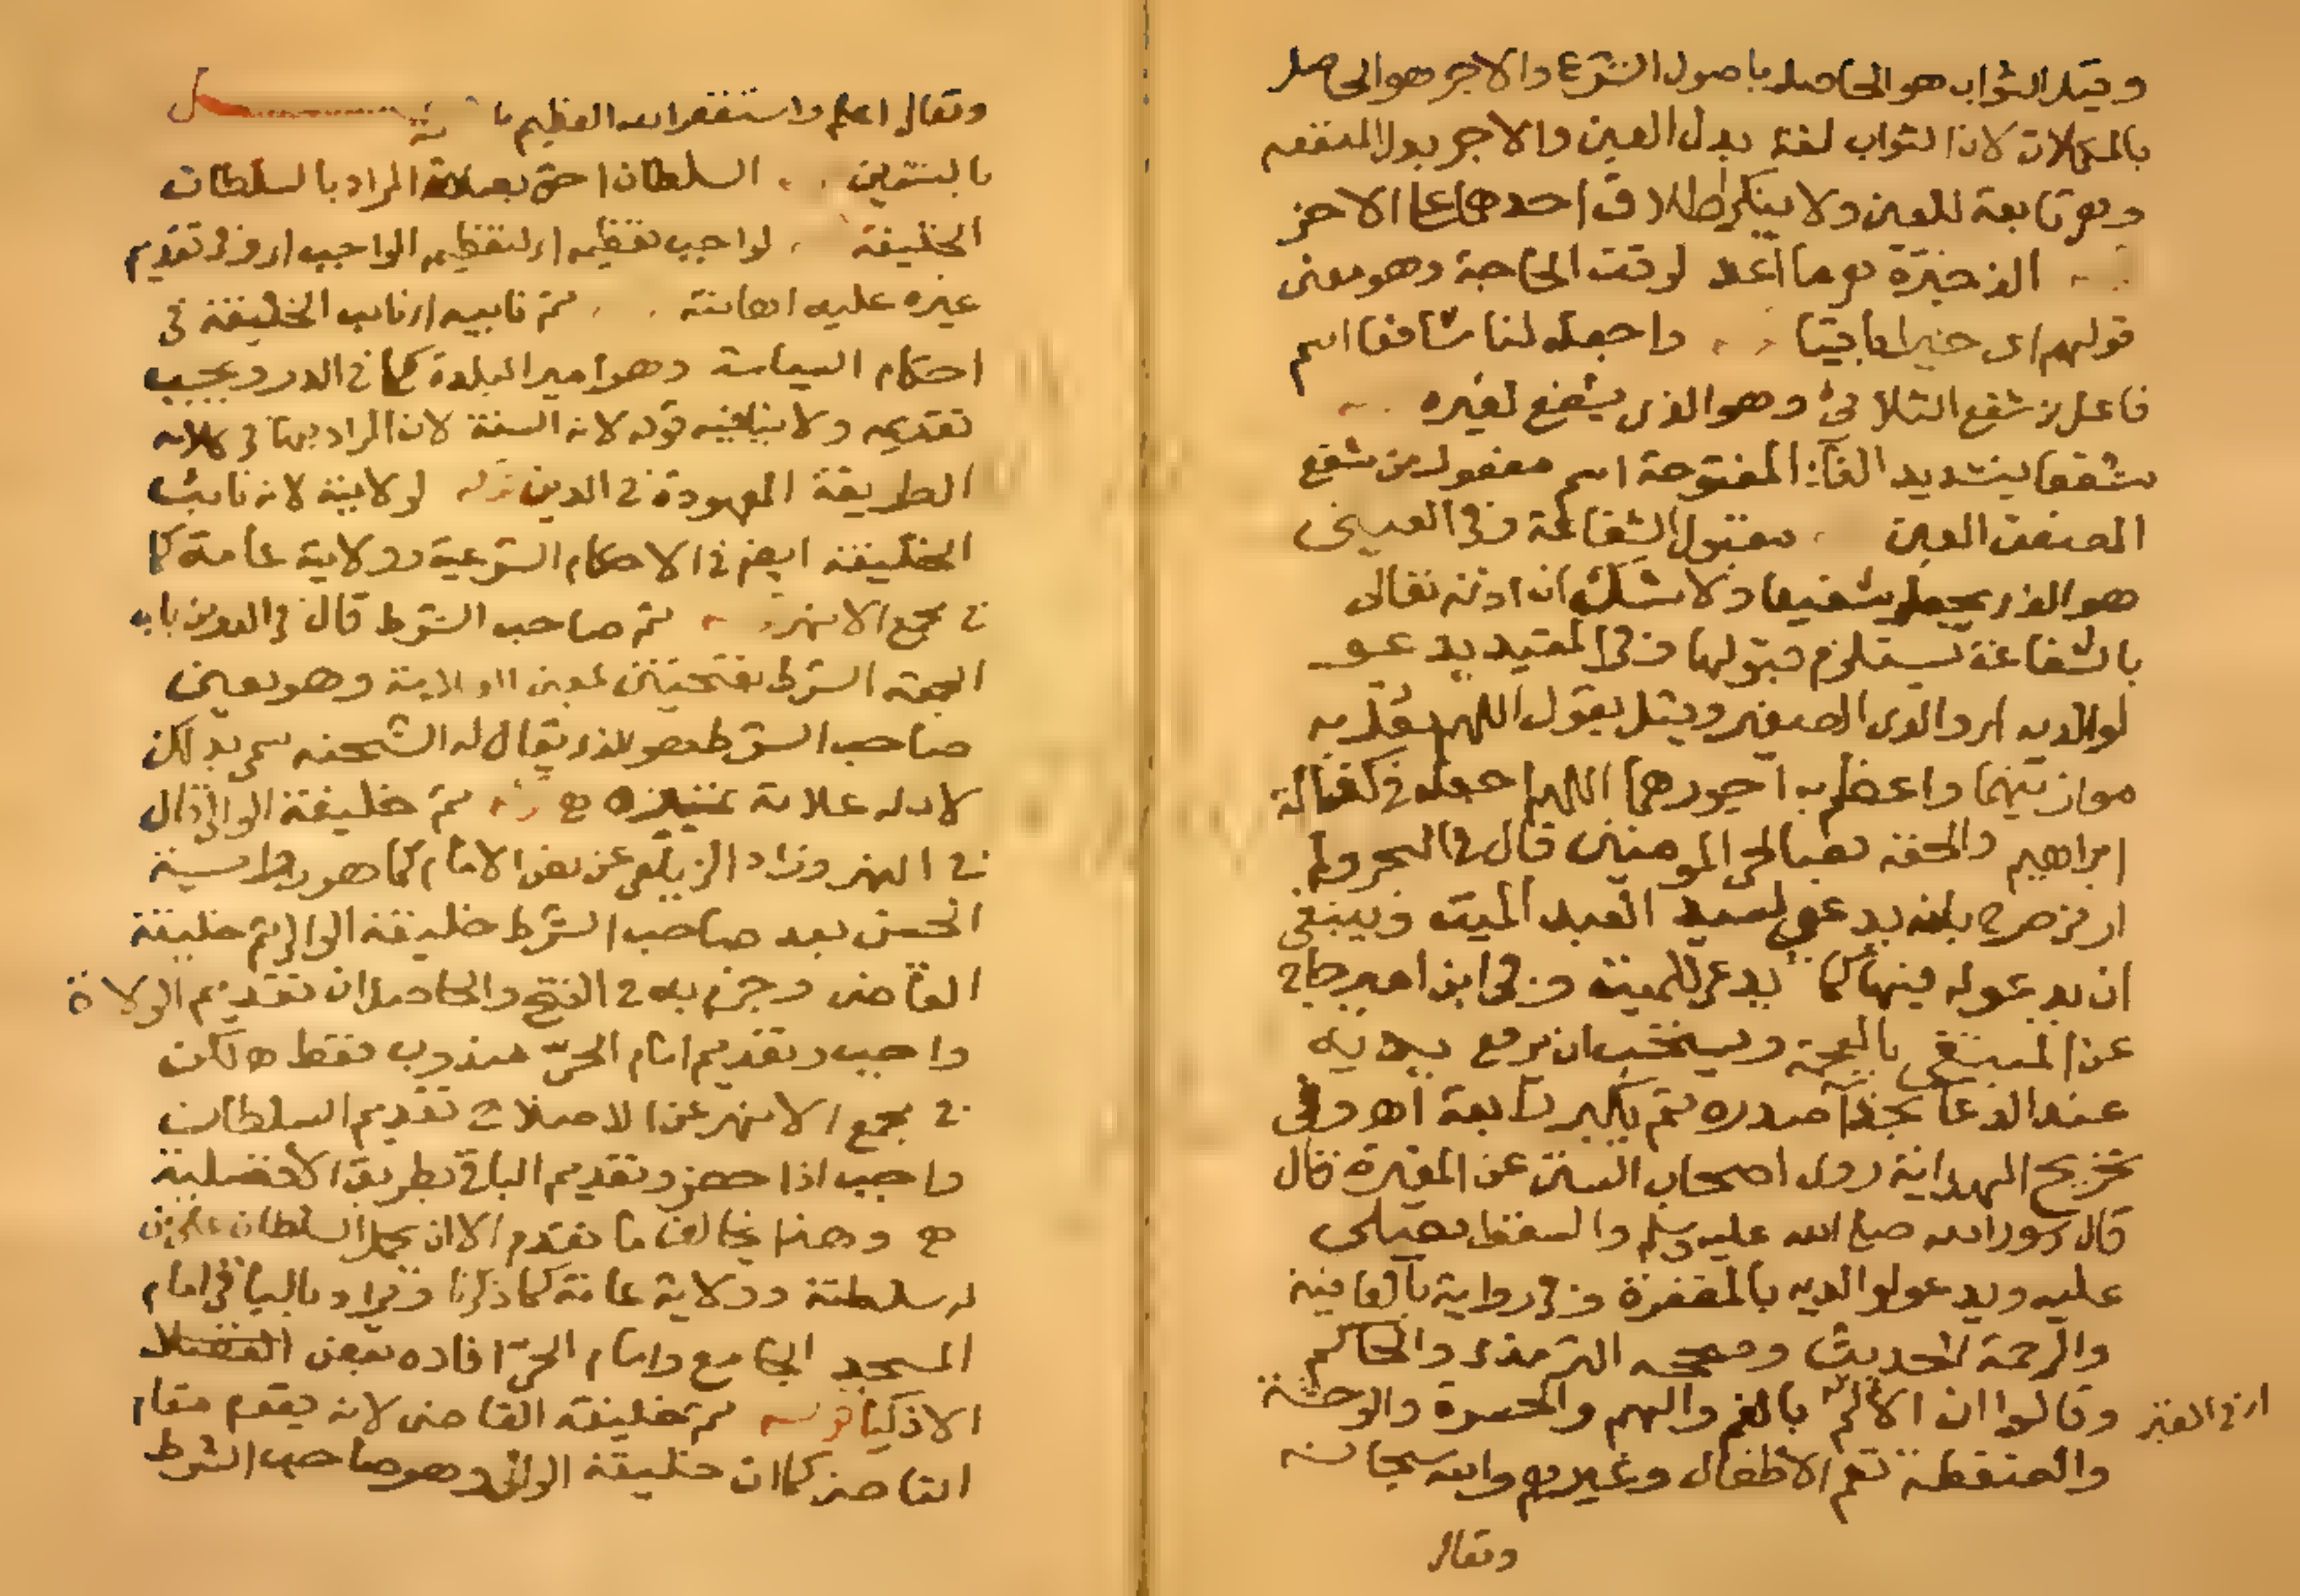 وقيل الثواب هو الحاصل باصول الشرع والاجر هو الحاصل
بالمكملات لان الثواب لغة بدل العين والاجر بدل المنفعه
وهى تابعة للعين ولا ينكر اطلاق احدهما على الاخر
الذخيرة هو ما اعد لوقت الحاجة وهو معنى
قولهم اى خيرا باقيا واجعله لنا شافعا اسم
فاعل من شفع الثلاثى وهو الذى يشفع لغيره
مشفعا بتشديد الفآء المفتوحة اسم مفعول من شفع
المضعف العين مقبول الشفاعة وفى العينى
هو الذى يجعل شفيعا ولا شك ان اذنه تعالى
بالشفاعة يستلزم قبولها وفى المفيد يدعو
لوالديه اى والدى الصغير وقيل يقول اللهم ثقل به
موازينهما واعظم به اجورهما اللهم اجعله فى كفالة
ابراهيم والحقه بصالحى المومنين قال فى البحر ولم
ار من صرح بانه يدعى لسيد العبد الميت وينبغى
ان يدعو له فيها كما يدعى للميت وفى ابن امير حاج
عن المبتغى بالمعجمة ويستحب ان يرفع يديه
عند الدعآ بحذآ صدره ثم يكبر رابعة اه وفى
تخريج الهداية روى اصحاب السنن عن المغيرة قال
قال رسول الله صلى الله عليه وسلم والسقط يصلى
عليه ويدعو لوالديه بالمغفرة وفى رواية بالعافية
والرحمة الحديث وصححه الترمذى والحاكم
وقالوا ان الالم بالغم والهم والحسرة والوحشة
اى فى القبر
والضغطة تعم الاطفال وغيرهم والله سبحانه
وتعالى
وتعالى اعلم واستغفر الله العظيم
السلطان احق بصلاته المراد بالسلطان
الخليفة لواجب تعظيمه اى لتعظيمه الواجب اى وفى تقديم
غيره عليه اهانته ثم نايبه اى نايب الخليفة فى
احكام السياسة وهو امير البلدة كما فى الدرر ويجب
تقديمه ولا ينافيه قوله لانه السنة لان المراد بها فى كلامه
الطريقة المعهودة فى الدين قوله لولايته لانه نائب
الخليفة ايضا فى الاحكام الشرعية وولاية عامة كما
فى مجمع الانهر ثم صاحب الشرط قال فى الدر من باب
الجمعة الشرط بفتحتين بمعنى العلامة وهو بمعنى
صاحب الشرط هو الذى يقال له الشحنة سمى بذلك
لان له علامة تميزه ح قوله ثم خليفة الوالى قال
فى النهر وزاد الزيلعى عن بعض الامام كما هو رواية
الحسن بعد صاحب الشرط خليفة الوالى ثم خليفة
القاضى وجزم به فى الفتح والحاصل ان تقديم الولاة
واجب وتقديم امام الحىّ مندوب فقط ه لكن
فى مجمع الانهر عن الاصلاح تقديم السلطان
واجب اذا حضر وتقديم الباقى بطريق الافضلية
ح وهذا يخالف ما تقدم الا ان يحمل السلطان على من
له سلطنة وولاية عامة كما ذكرنا ويراد بالباقى امام
المسجد الجامع وامام الحىّ افاده بعض الفضلا
الاذكيآ قوله ثم خليفة القاضى لانه يقوم مقام
القاضى كما ان خليفة الوالى وهو صاحب الشرط